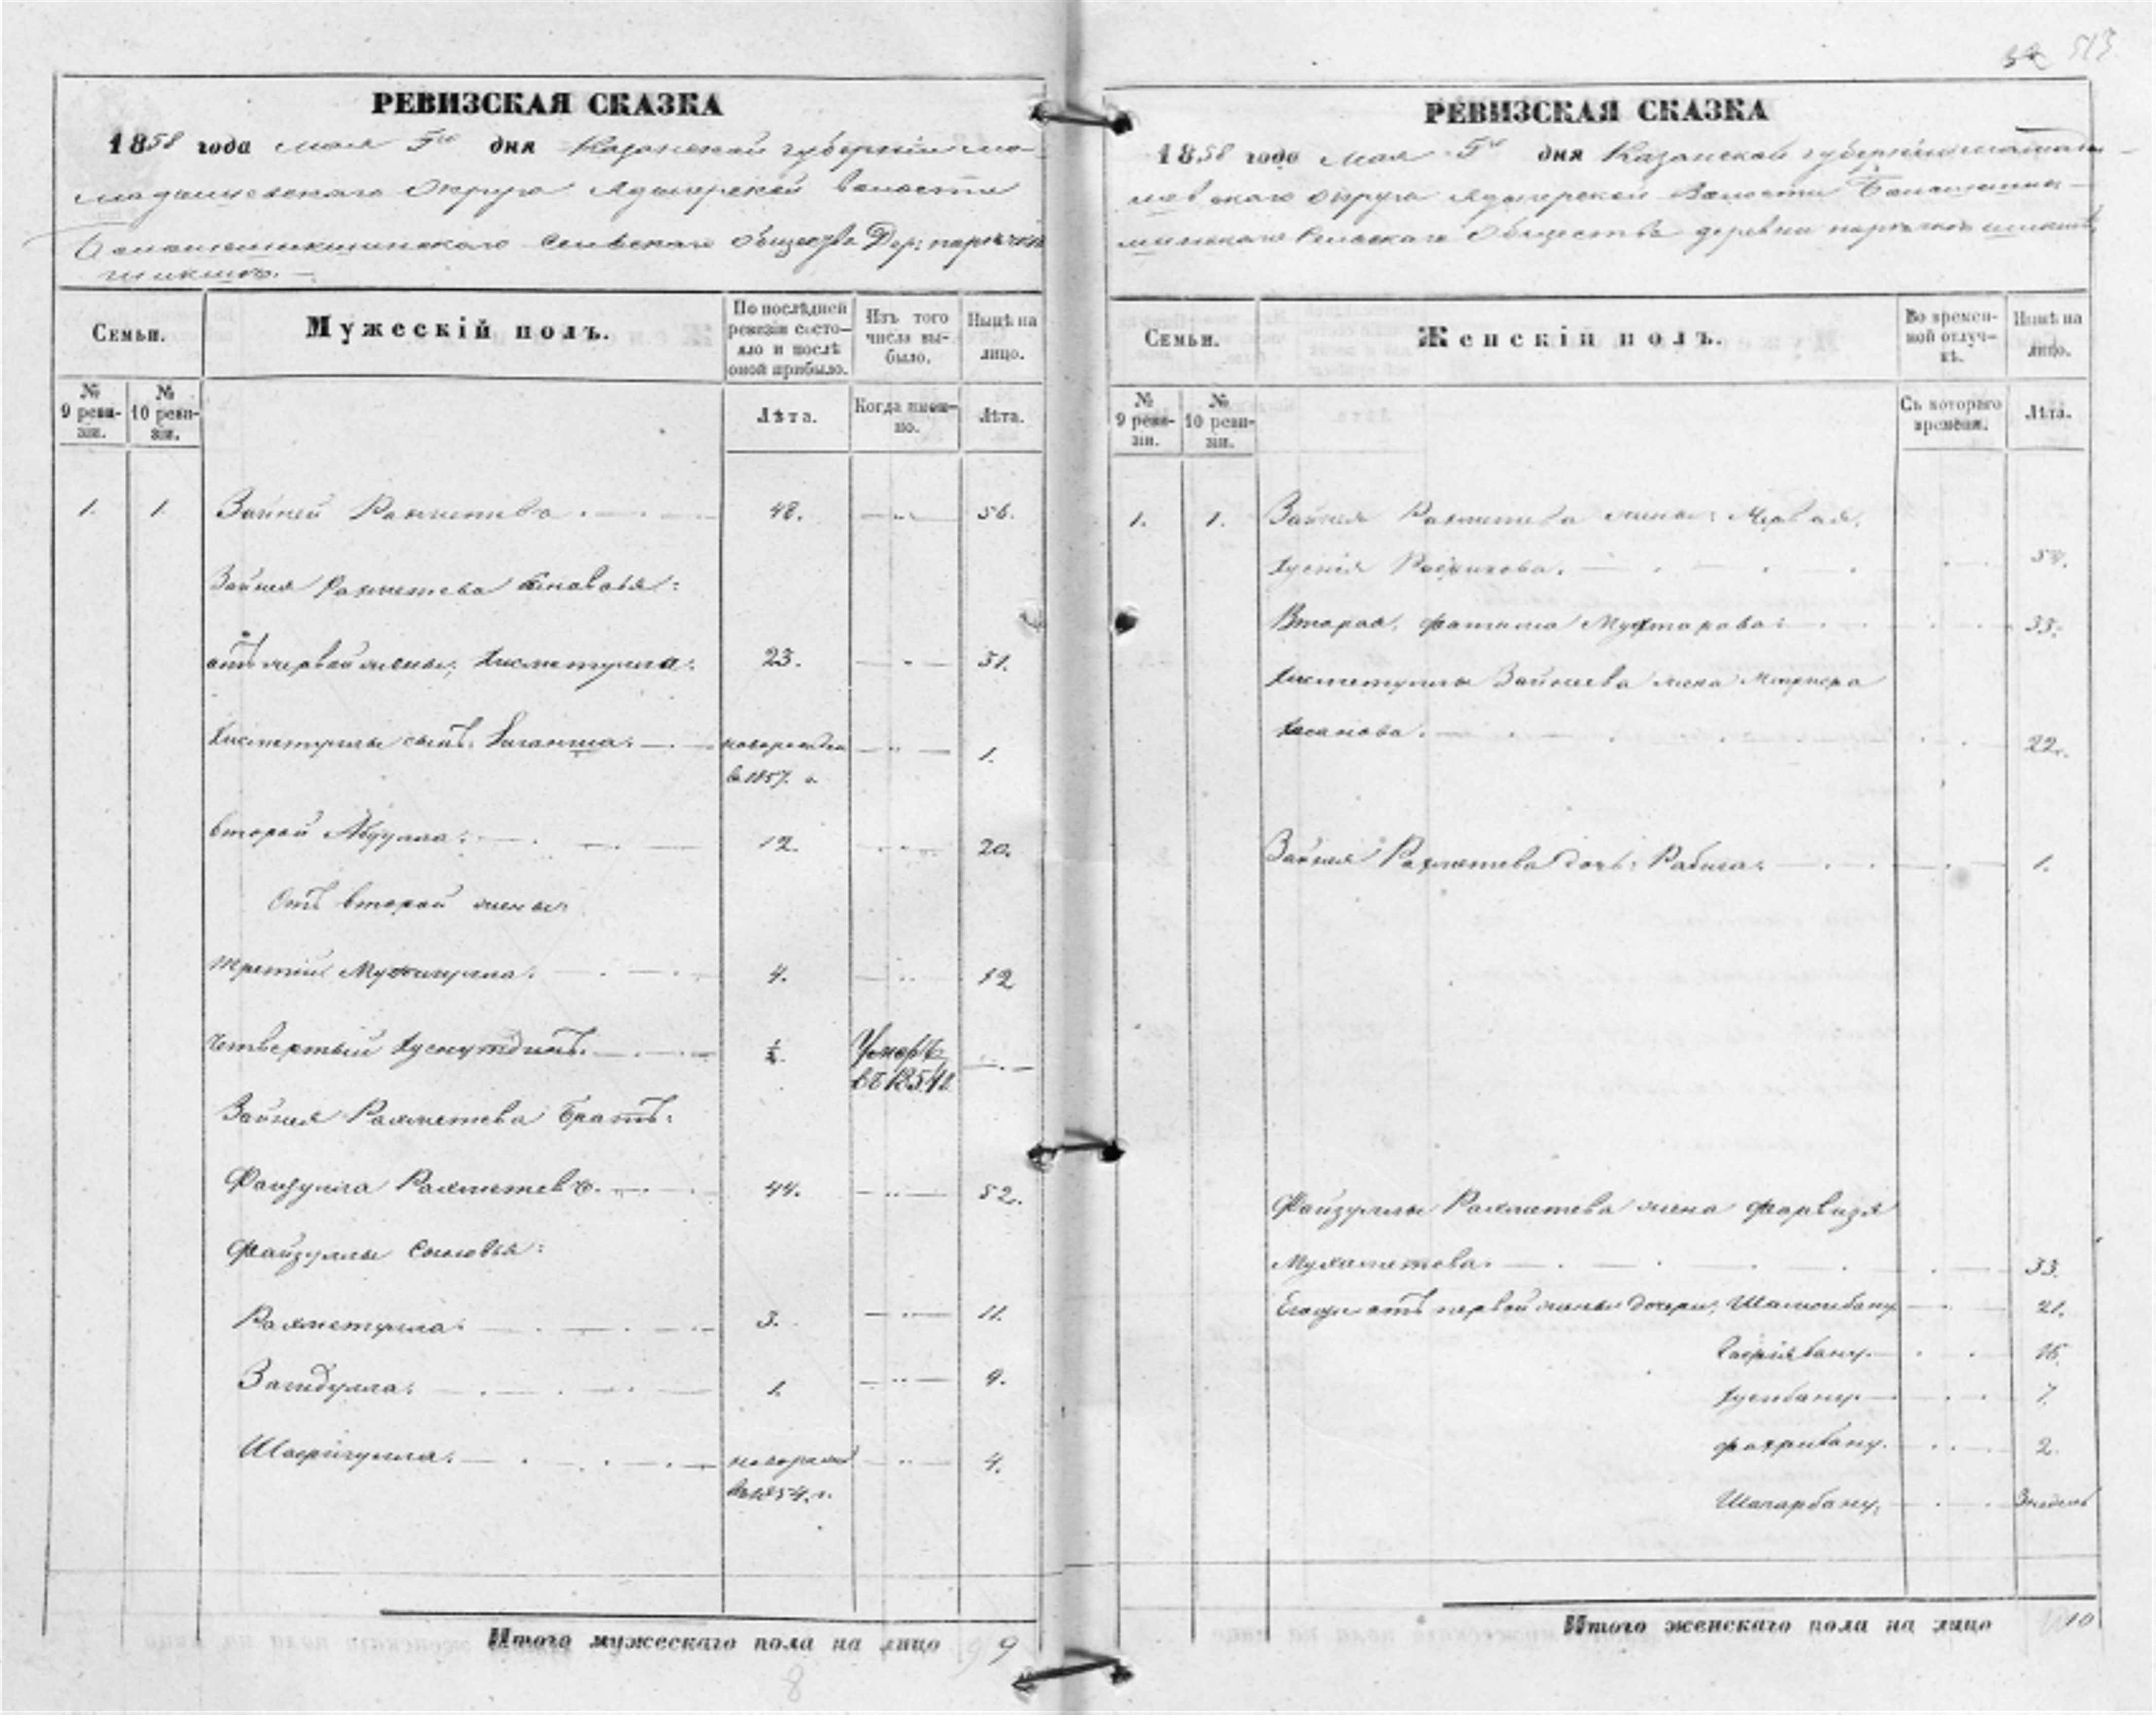 РЕВИЗСКАЯ СКАЗКА
1858 года мая 5го дня Казанской губернiи ма-
мадышскаго Округа Адаерской волости
сельскаго общества Дер:
Семьи.
Мужескiй полъ.
По послѣдней ревизiи состо-яло и послѣ оной прибыло.
Изъ того числа вы-было.
Нынѣ на лицо.
№ 9 реви-зiи.
№ 10 реви-зiи.
Лѣта.
Когда имен-но.
Лѣта.
1. 1 Зайней Рахметева 48. 56.
Зайнея Рахметева сыновья:
отъ первой жены, Хисметулла. 23. 31.
Хисметуллы сынъ: новорожден 1.
въ 1857. г.
второй Абдулла. 12. 20.
Отъ второй жены
третiй 4. 12
четвертый Хуснутдинъ. ½. Умеръ
въ 1854 г.
Зайнея Рахметева братъ:
Файзулла Рахметевъ. 44. 52.
Файзуллы сыновья:
Рахметулла. 3. 11.
Загидулла. 1. 9.
Шафигулла. новорожд 4.
въ 1854. г.
Итого мужескаго пола на лицо 9
8
513
РЕВИЗСКАЯ СКАЗКА
1858 года Мая 5го дня Казанской губернiи мамады-
шевскаго округа Адаерской Волости
Сельскаго Общества деревни
Семьи.
Женскiй полъ.
Во времен-ной отлуч-кѣ.
Нынѣ на лицо.
№ 9 реви-зiи.
№ 10 реви-зiи.
Съ котораго времени.
Лѣта.
1. 1. Зайнея Рахметева жены: Первая,
Хуснiя 54.
Вторая, Фатима Мухтарова. 33.
Хисметуллы Зайнеева жена
Хасанова. 22.
Зайнея Рахметева дочь: Рабига. 1.
Файзуллы Рахметева жена
Мухаметова. 33.
Егоже отъ первой жены дочери, 21.
16.
Хуснбану. 7.
Фахрибану. 2.
Шагарбану, 3 недель
Итого женскаго пола на лицо 10